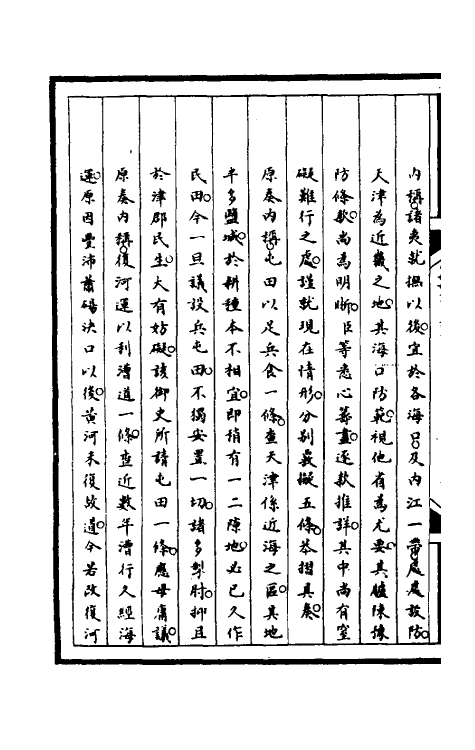 內稱諸夷就撫以後宜於各海口及內江一帶處處設防
天津為近畿之地其海口防範視他省為尤要其臚陳豫
防條款尚為明晰臣等悉心籌畫逐款推詳其中尚有窒
礙難行之處謹就現在情形分別裁擬五條恭摺具奏
原奏內稱屯田以足兵食一條查天津係近海之區其地
半多鹽堿於耕種本不相宜即稍有一二隙地必已久作
民田今一旦議設兵屯田不獨安置一切諸多掣肘抑且
於津郡民生大有妨礙該御史所請屯田一條應毋庸議
原奏內稱復河運以利漕道一條查近數年漕行久經海
運原因豐沛蕭碭決口以後黃河未復故道今若改復河